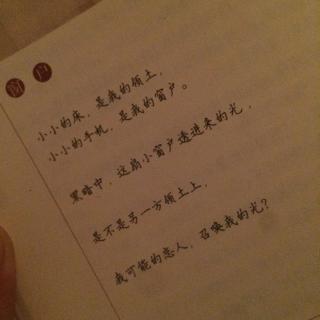 窗口
小小的床，是我的领土，
小小的手机，是我的窗户。
黑暗中，这扇小窗户透进来的光，
是不是另一方领土上，
我可能的恋人，召唤我的光？